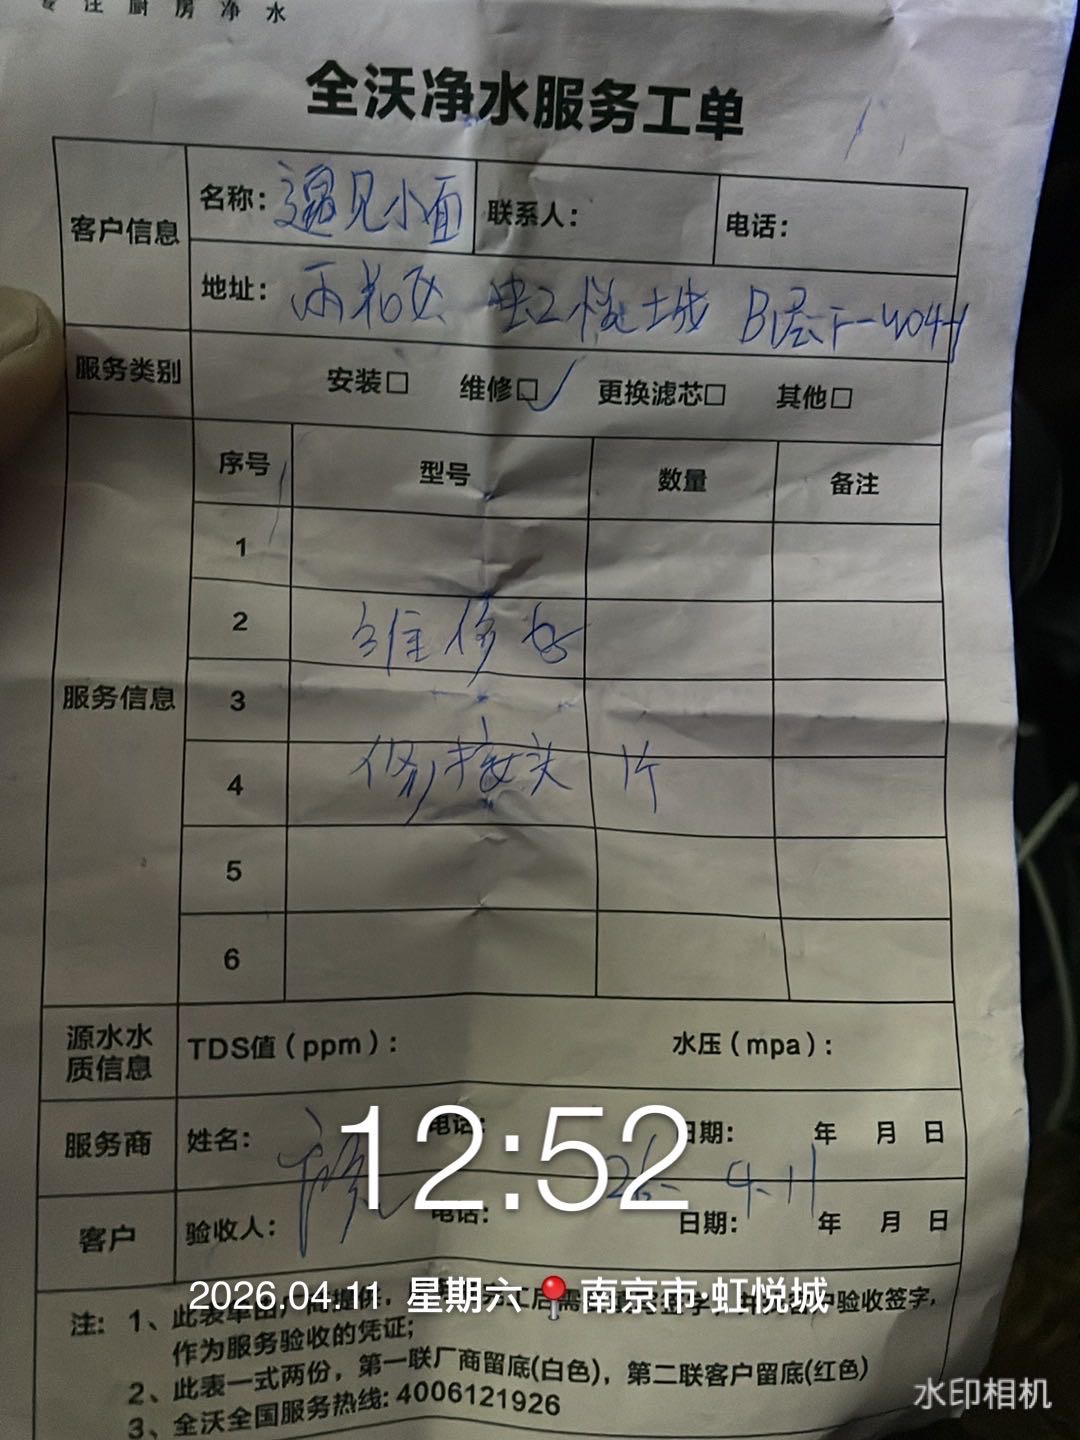 专注厨房净水
全沃净水服务工单
客户信息
名称：遇见小面 联系人： 电话：
地址：雨花区 虹悦城 B1层
服务类别 安装□ 维修□✓ 更换滤芯□ 其他□
服务信息
序号 型号 数量 备注
1
2 维修好
3
4 修接头 1个
5
6
源水水质信息 TDS值（ppm）： 水压（mpa）：
服务商 姓名： 电话： 日期： 年 月 日
26.4.11
客户 验收人： 电话： 日期： 年 月 日
12:52
2026.04.11 星期六 南京市·虹悦城
注：1、此表单由厂商提供，工后需 验收签字，
作为服务验收的凭证；
2、此表一式两份，第一联厂商留底(白色)，第二联客户留底(红色)
3、全沃全国服务热线: 4006121926
水印相机